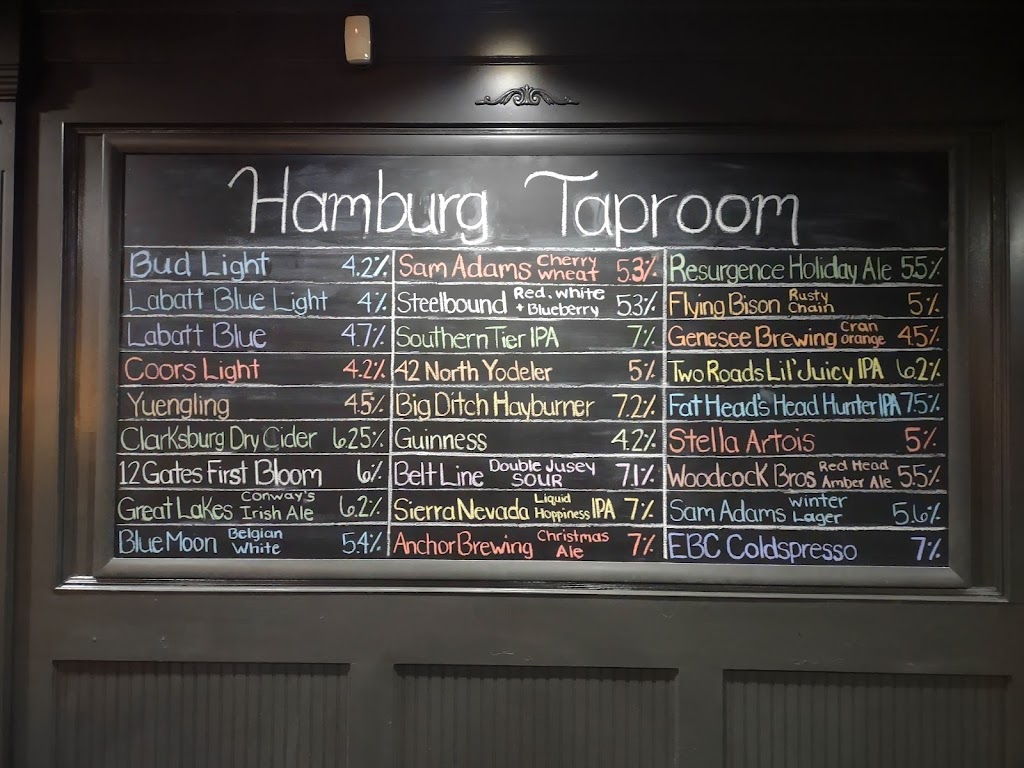 Hamburg Taproom
Bud Light 4.2%
Labatt Blue Light 4%
Labatt Blue 4.7%
Coors Light 4.2%
Yuengling 4.5%
Clarksburg Dry Cider 6.25%
12 Gates First Bloom 6%
Great Lakes Conway's Irish Ale 6.2%
Blue Moon Belgian White 5.4%
Sam Adams Cherry Wheat 5.3%
Steelbound Red, White + Blueberry 5.3%
Southern Tier IPA 7%
42 North Yodeler 5%
Big Ditch Hayburner 7.2%
Guinness 4.2%
Belt Line Double Jusey SOUR 7.1%
Sierra Nevada Liquid Hoppiness IPA 7%
Anchor Brewing Christmas Ale 7%
Resurgence Holiday Ale 5.5%
Flying Bison Rusty Chain 5%
Genesee Brewing Cran orange 4.5%
Two Roads Lil' Juicy IPA 6.2%
Fat Head's Head Hunter IPA 7.5%
Stella Artois 5%
Woodcock Bros Red Head Amber Ale 5.5%
Sam Adams Winter Lager 5.6%
EBC Coldspresso 7%